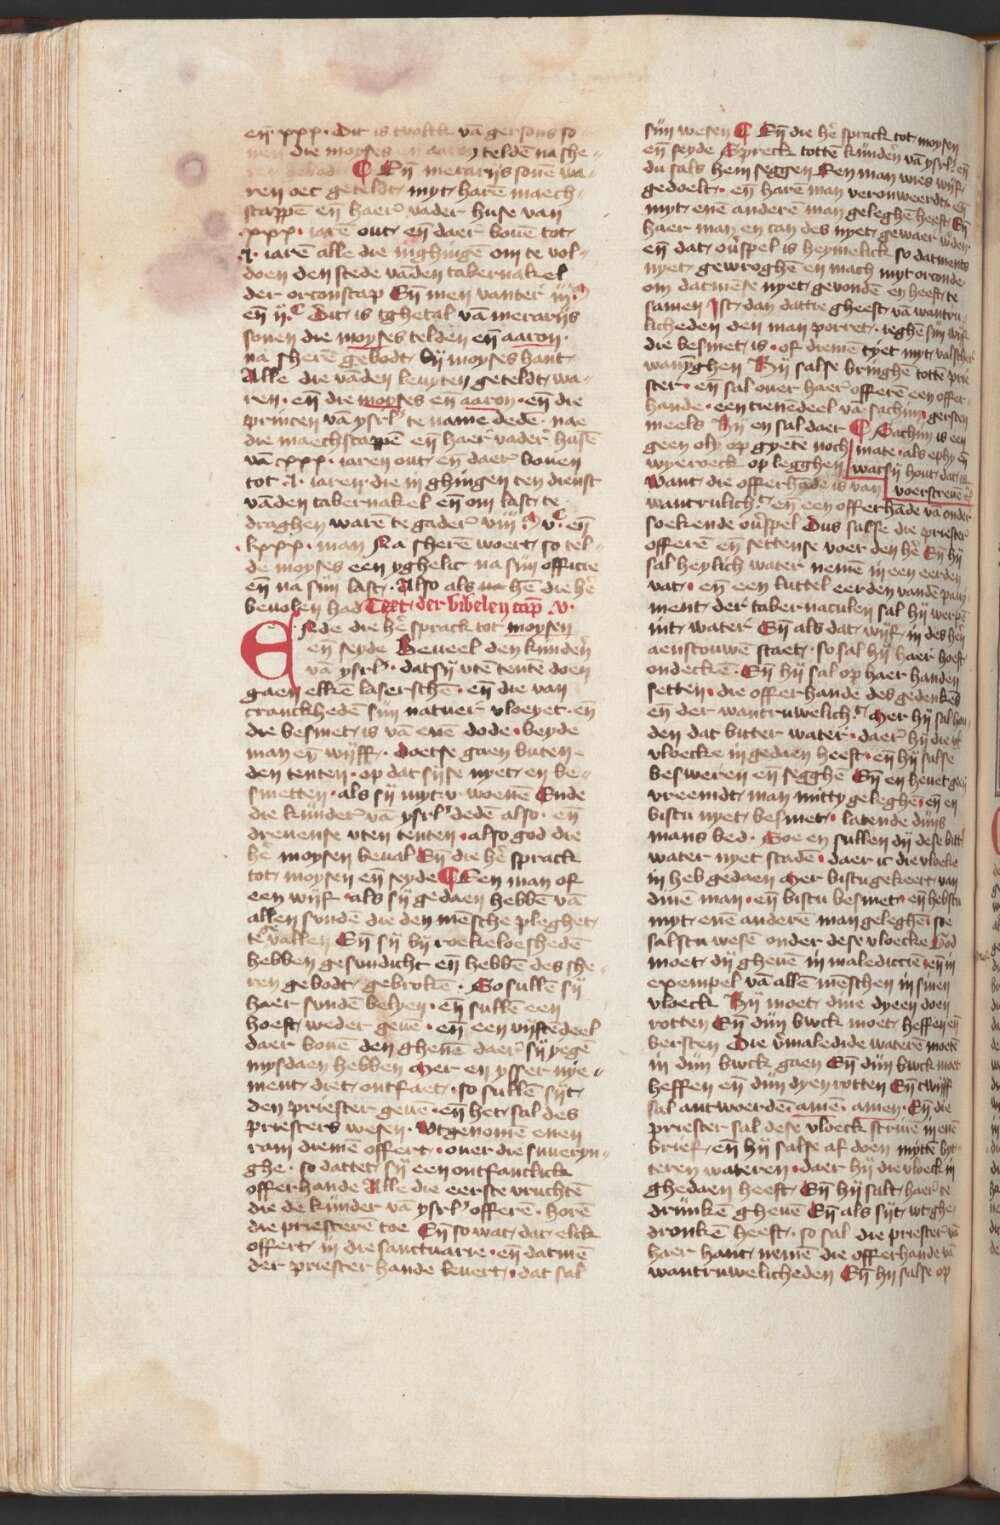 eñ · xxx · Dit is twolck vā gersons so
nen die moyses en aaron teldē na she-
ren gebodt ¶ Eñ merarijs sonē wa-
ren oec geteldt myt harē maech-
scappē eñ haer vader huse van
.xxx. iarē out eñ daer bouē tot
.l. iarē alle die inghingē om te vol-
doen den stede vādē tabernakel
der orconscap Eñ men vanter iij.ᴹ
eñ ij.ᶜ Dit is tghetal vā merarijs
sonen die moyses teldē eñ aaron ·
na sherē gebodt bij moyses hant
Alle die vādē leuyten geteldt wa-
ren · eñ die moyses en aaron · eñ die
princen vā ysrl' te name dedē · nae
die maechscappē eñ haer vader husē
vā xxx · iaren out eñ daer bouen
tot .l. iaren · die in ghingen ten dienst
vādē tabernakel eñ om last te
draghen warē te gader viijᴹ vᶜ eñ
lxxx · man Na sherē woert so tel-
de moyses een yghelic na sijn officie
eñ na sijn last · Also als hē die hē
beuolen had Text der bibelen cap v ·
ENde die hē sprack tot moysen
eñ seyde Beueel den kinderē
vā ysrl' · dat sij vtē tentē doen
gaen elkē laserschē · eñ die van
cranckhedē sijn natuer vloeyet · eñ
die besmet is vā enē dode · beyde
man eñ wijff · doetse gaen buten
den tenten · op dat sijse nyet en be-
smetten · als sij myt v woenē Ende
die kinder vā ysrl' dedē also · eñ
dreuense vten tenten · also god die
hē moysen beual Eñ die hē sprack
tot moysen eñ seyde ¶ Een man of
een wijf · als sij gedaen hebbē vā
allen sundē die den mēsche pleghet
te vallen Eñ sij bij roekeloeshedē
hebben gesundicht eñ hebbē des she-
ren gebodt gebrokē · So sullē sij
haer sundē belyen · eñ sullē een
hoeft weder geuē · eñ een vijftedeel
daer bouē den ghenē daer sij yegē
mysdaen hebben Mer en ysser nye-
ment diet ontfaet · so sullē sijt
den priester geuē · eñ het sal des
priesters wesen · Vtgenomē enen
ram diemē offert · ouer die suueryn-
ghe · so dattet sij een ontfanclick
offerhande Alle die eerste vruchtē
die de kinder vā ysrl' offerē · horē
die priesterē toe Eñ so wat dat elck
offert in die sanctuarie · eñ datmē
der priester hande leuert · dat sal
sijn wesen ¶ Eñ die hē sprack tot moysen
eñ seyde Spreck tottē kinderē vā ysrl' eñ
du sals hem seggen Een man wies wijf
gedoelt · eñ harē man veronweerdt eñ
myt enē anderē man geleghē heeft Eñ
haer man en can des nyet gewaer w'den
eñ dat ou'spel is heymelick so datments
nyet gewroghē en mach myt orconde
om datmēse nyet gevondē en heeft te
samen Ist dan dattie gheest vā wantru-
licheden den man porret · ieghē sijn wijf
die besmet is · of diemē tyet myt valscher
wanyghen Hij salse bringhē tottē prie
ster · eñ sal ouer haer offerē een offer-
hande · een tienēdeel vā sachim gersten
meels Hij en sal daer ¶ Sachim is een
geen oly op gyetē noch mate · als ephy eñ
wyeroeck op legghen watsij hout dat is
Want die offerhāde is van voerscreuē
wantrulich' eñ een offerhāde vā onder
soekende ou'spel Dus salse die priester
offerē eñ settense voer den hē Eñ hij
sal heylich water nemē in een eerden
vat · eñ een luttel eerden vandē paui
ment der tabernaculen sal hij werpē
int water Eñ als dat wijf in des hē
aenscouwē staet · so sal hij haer hoeft
ondeckē · Eñ hij sal op haer handen
setten · die offerhande des gedenkēs
eñ der wantruwelich' Mer hij sal hou
den dat bitter water · daer hij die
vloecke in gedaen heeft · eñ hij salse
besweren eñ segghē Eñ en heuet geen
vreemdt man mit ty geleghē · eñ en
bistu nyet besmet · latende dijns
mans bed · Soe en sullen dij dese bitt'
water nyet scadē · daer ic die vloecke
in heb gedaen Mer bistu gekeert van
dinē man · eñ bistu besmet · eñ hebstu
myt enē anderē man geleghē so
salstu wesē onder dese vloecke God
moet dij gheuē in maledictie · eñ in
exempel vā allē mēschen in sinen
vloeck Hij moet dine dyeen doen
rotten Eñ dijn bwck moet heffen eñ
bersten Die v'maledide waterē moetē
in dijn bwck gaen Eñ dijn bwck moet
heffen eñ dijn dyen rotten Eñ twijff
sal antwoerdē · amē · amen · Eñ die
priester sal dese vloeck scriuē in enē
brief · eñ hij salse af doen mittē byt-
teren wateren · daer hij die vloeck in
ghedaen heeft Eñ hij salt haer te
drinkē gheuē Eñ als sijt wtghe
dronkē heeft · so sal die priester vā
haer hant nemē die offerhande vā
wantruwelicheden Eñ hij salse op